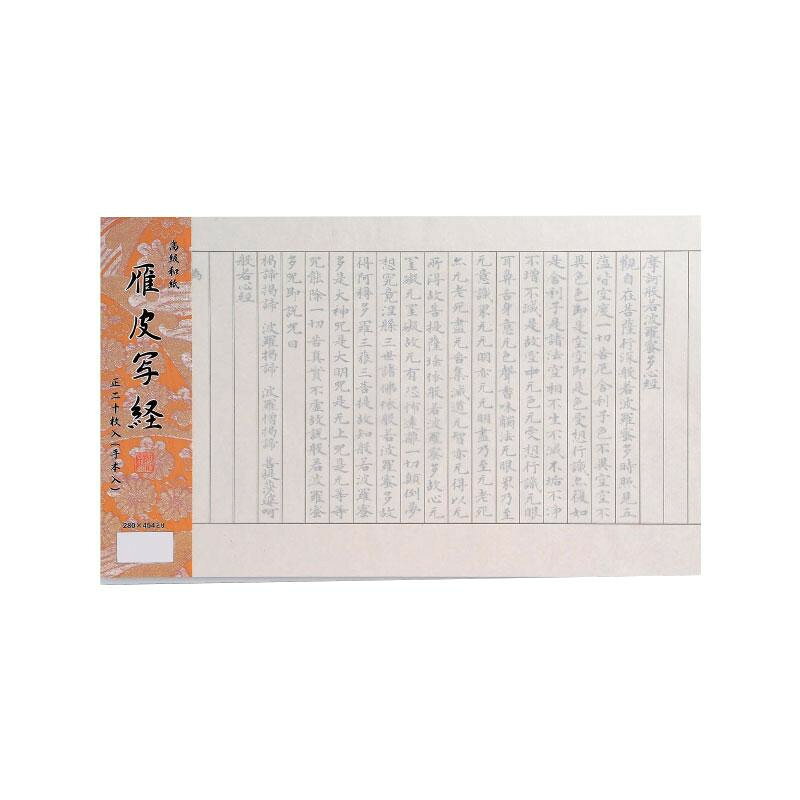 高級和紙
雁皮写経
正二十枚入(手本入)
摩訶般若波羅蜜多心経
觀自在菩薩行深般若波羅蜜多時照見五
蘊皆空度一切苦厄舎利子色不異空空不
異色色即是空空即是色受想行識亦復如
是舎利子是諸法空相不生不滅不垢不浄
不増不減是故空中无色无受想行識无眼
耳鼻舌身意无色聲香味觸法无眼界乃至
无意識界无无明亦无无明盡乃至无老死
亦无老死盡无苦集滅道无智亦无得以无
所得故菩提薩埵依般若波羅蜜多故心无
罣礙无罣礙故无有恐怖遠離一切顛倒夢
想究竟涅槃三世諸佛依般若波羅蜜多故
得阿耨多羅三藐三菩提故知般若波羅蜜
多是大神咒是大明咒是无上咒是无等等
咒能除一切苦真實不虚故説般若波羅蜜
多咒即説咒曰
揭諦揭諦 波羅揭諦 波羅僧揭諦 菩提娑婆訶
般若心経
為